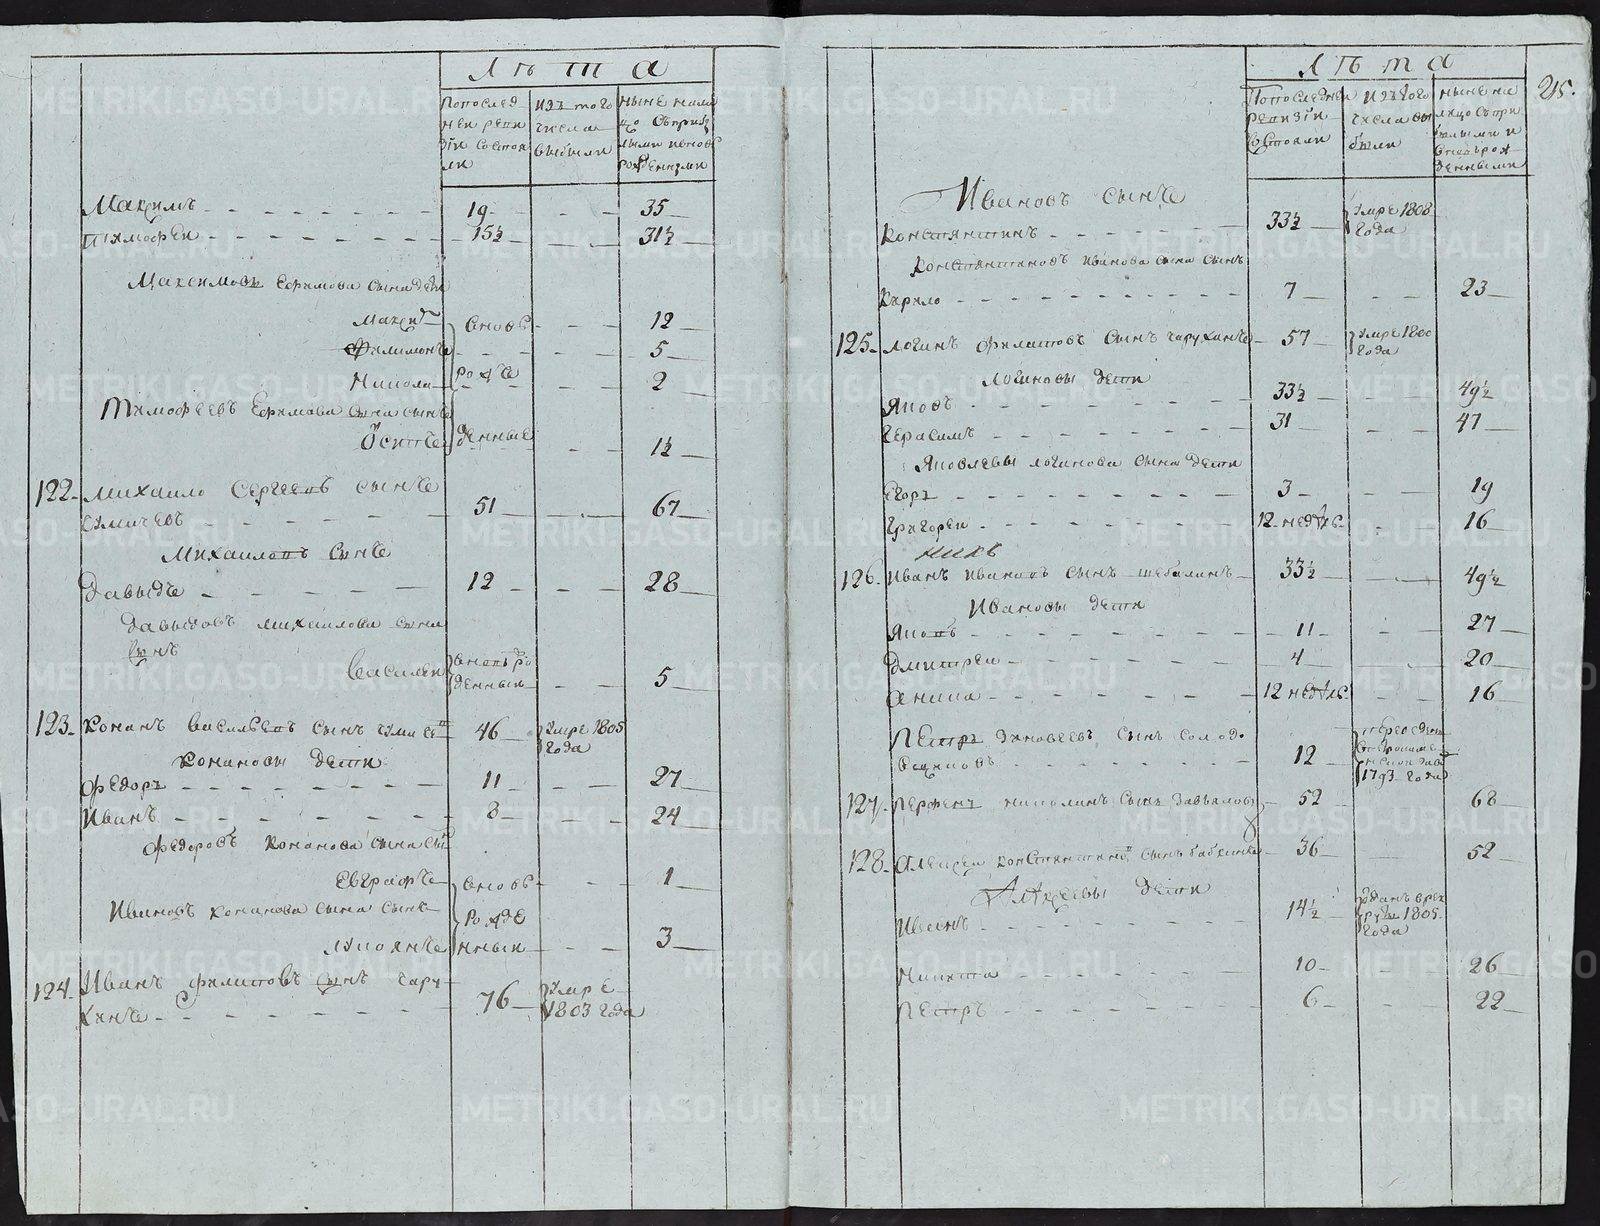 Лѣта
Попослед
ней реви
зіи состоя
ли
изъ того
числа
выбыли
ныне нали
цо съприб
лыми ивновь
рожденными
Максимъ 19 35
Тимофеи 15½ 31½
Максимовы Ефимова сына дети
Максимъ вновь 12
Филимонъ 5
Никола рожде 2
Тимофеевъ Ефимова сына сынъ
Осипъ денные 1½
122. Михаило Сергеевъ сынъ
51 67
Михаиловъ сынъ
Давыдъ 12 28
Давыдовъ михаилова сына
сынъ
Василеи вновь ро
денныи 5
123. Конанъ васильевъ сынъ 46 умре 1805
года
Конановы дети
Федоръ 11 27
Иванъ 8 24
Федоровъ Конанова сына сынъ
Евграфъ вновь 1
Ивановъ конанова сына сынъ рожде
Лукоянъ нныи 3
124. Иванъ филатовъ сынъ чару
хинъ 76 умре
1803 года
Лѣта
Попоследней
ревизіи
состояли
изътого
числа вы
были
ныне на
лицо съпри
былыми и
вновьрож
денными
215.
Ивановъ сынъ
Константинъ 33½ умре 1808
года
Константиновъ иванова сына сынъ
Кирило 7 23
125. Логинъ филатовъ сынъ чарухинъ 57 умре 1800
года
Логиновы дети
Яковъ 33½ 49½
Герасимъ 31 47
Яковлевы логинова сына дети
Егоръ 3 19
Григореи 12 недѣль 16
126. Иванъ ивановъ сынъ шебалинъ 33½ 49½
Ивановы дети
Яковъ 11 27
Дмитреи 4 20
Аника 12 недѣль 16
Петръ Зиновеевъ сынъ солодо
12
1793 года
127. Перфенъ николинъ сынъ завьялов 52 68
128. Алексеи константиновъ сынъ бабкинъ 36 52
Алексеевы дети
Иванъ 14½ зданъ врек
руты 1805.
года
Никита 10 26
Петръ 6 22
METRIKI.GASO-URAL.RU